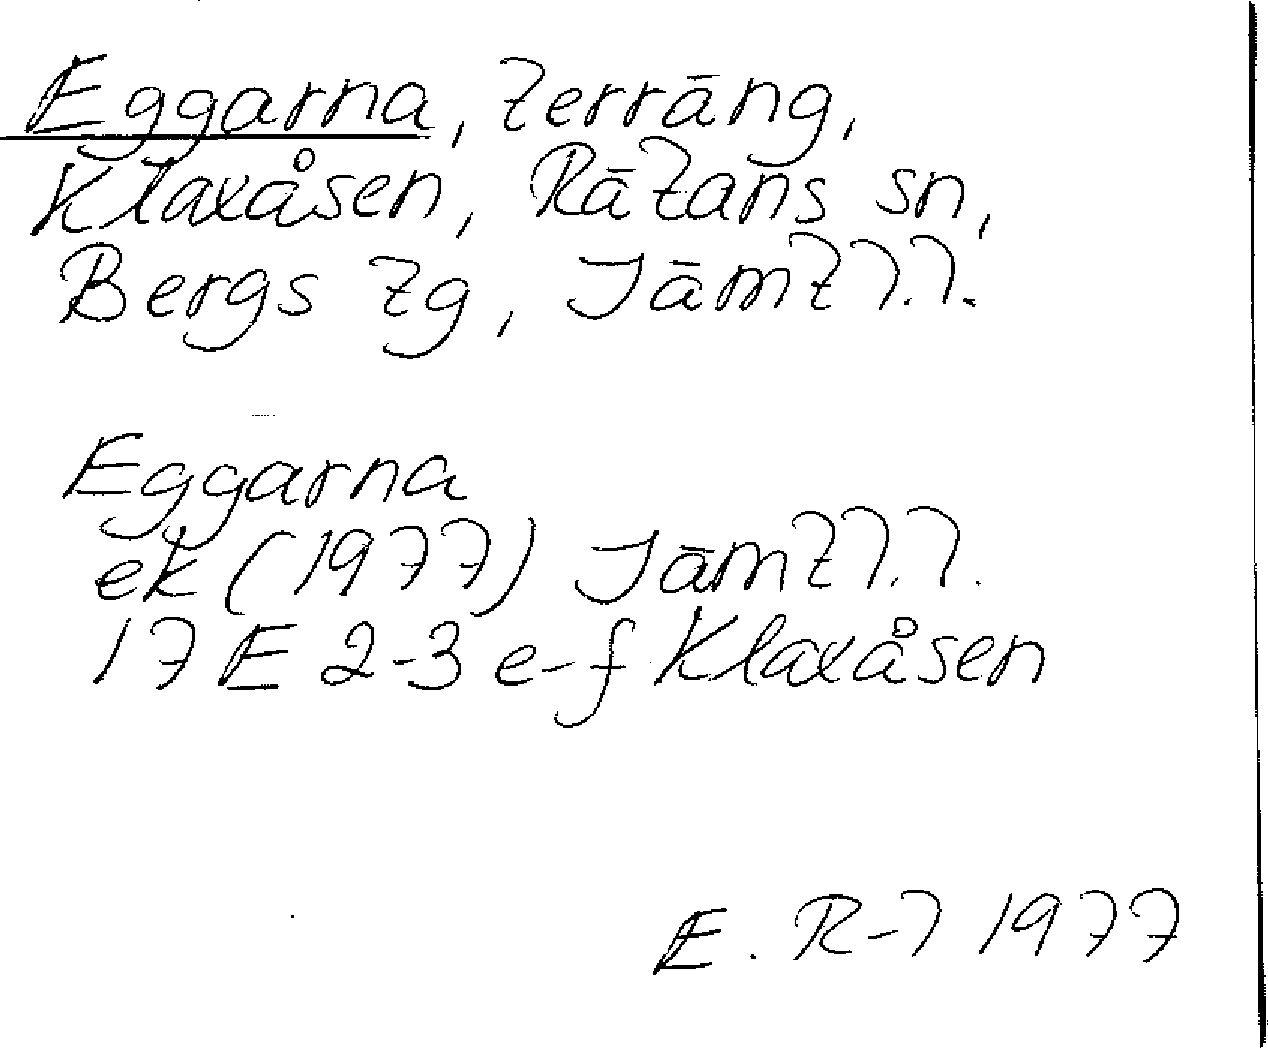 Eggarna, terräng,
Klaxåsen, Rätans sn,
Bergs tg, Jämtl.l.
Eggarna
ek (1977) Jämtl.l.
17 E 2-3 e-f Klaxåsen
E. R-l 1977